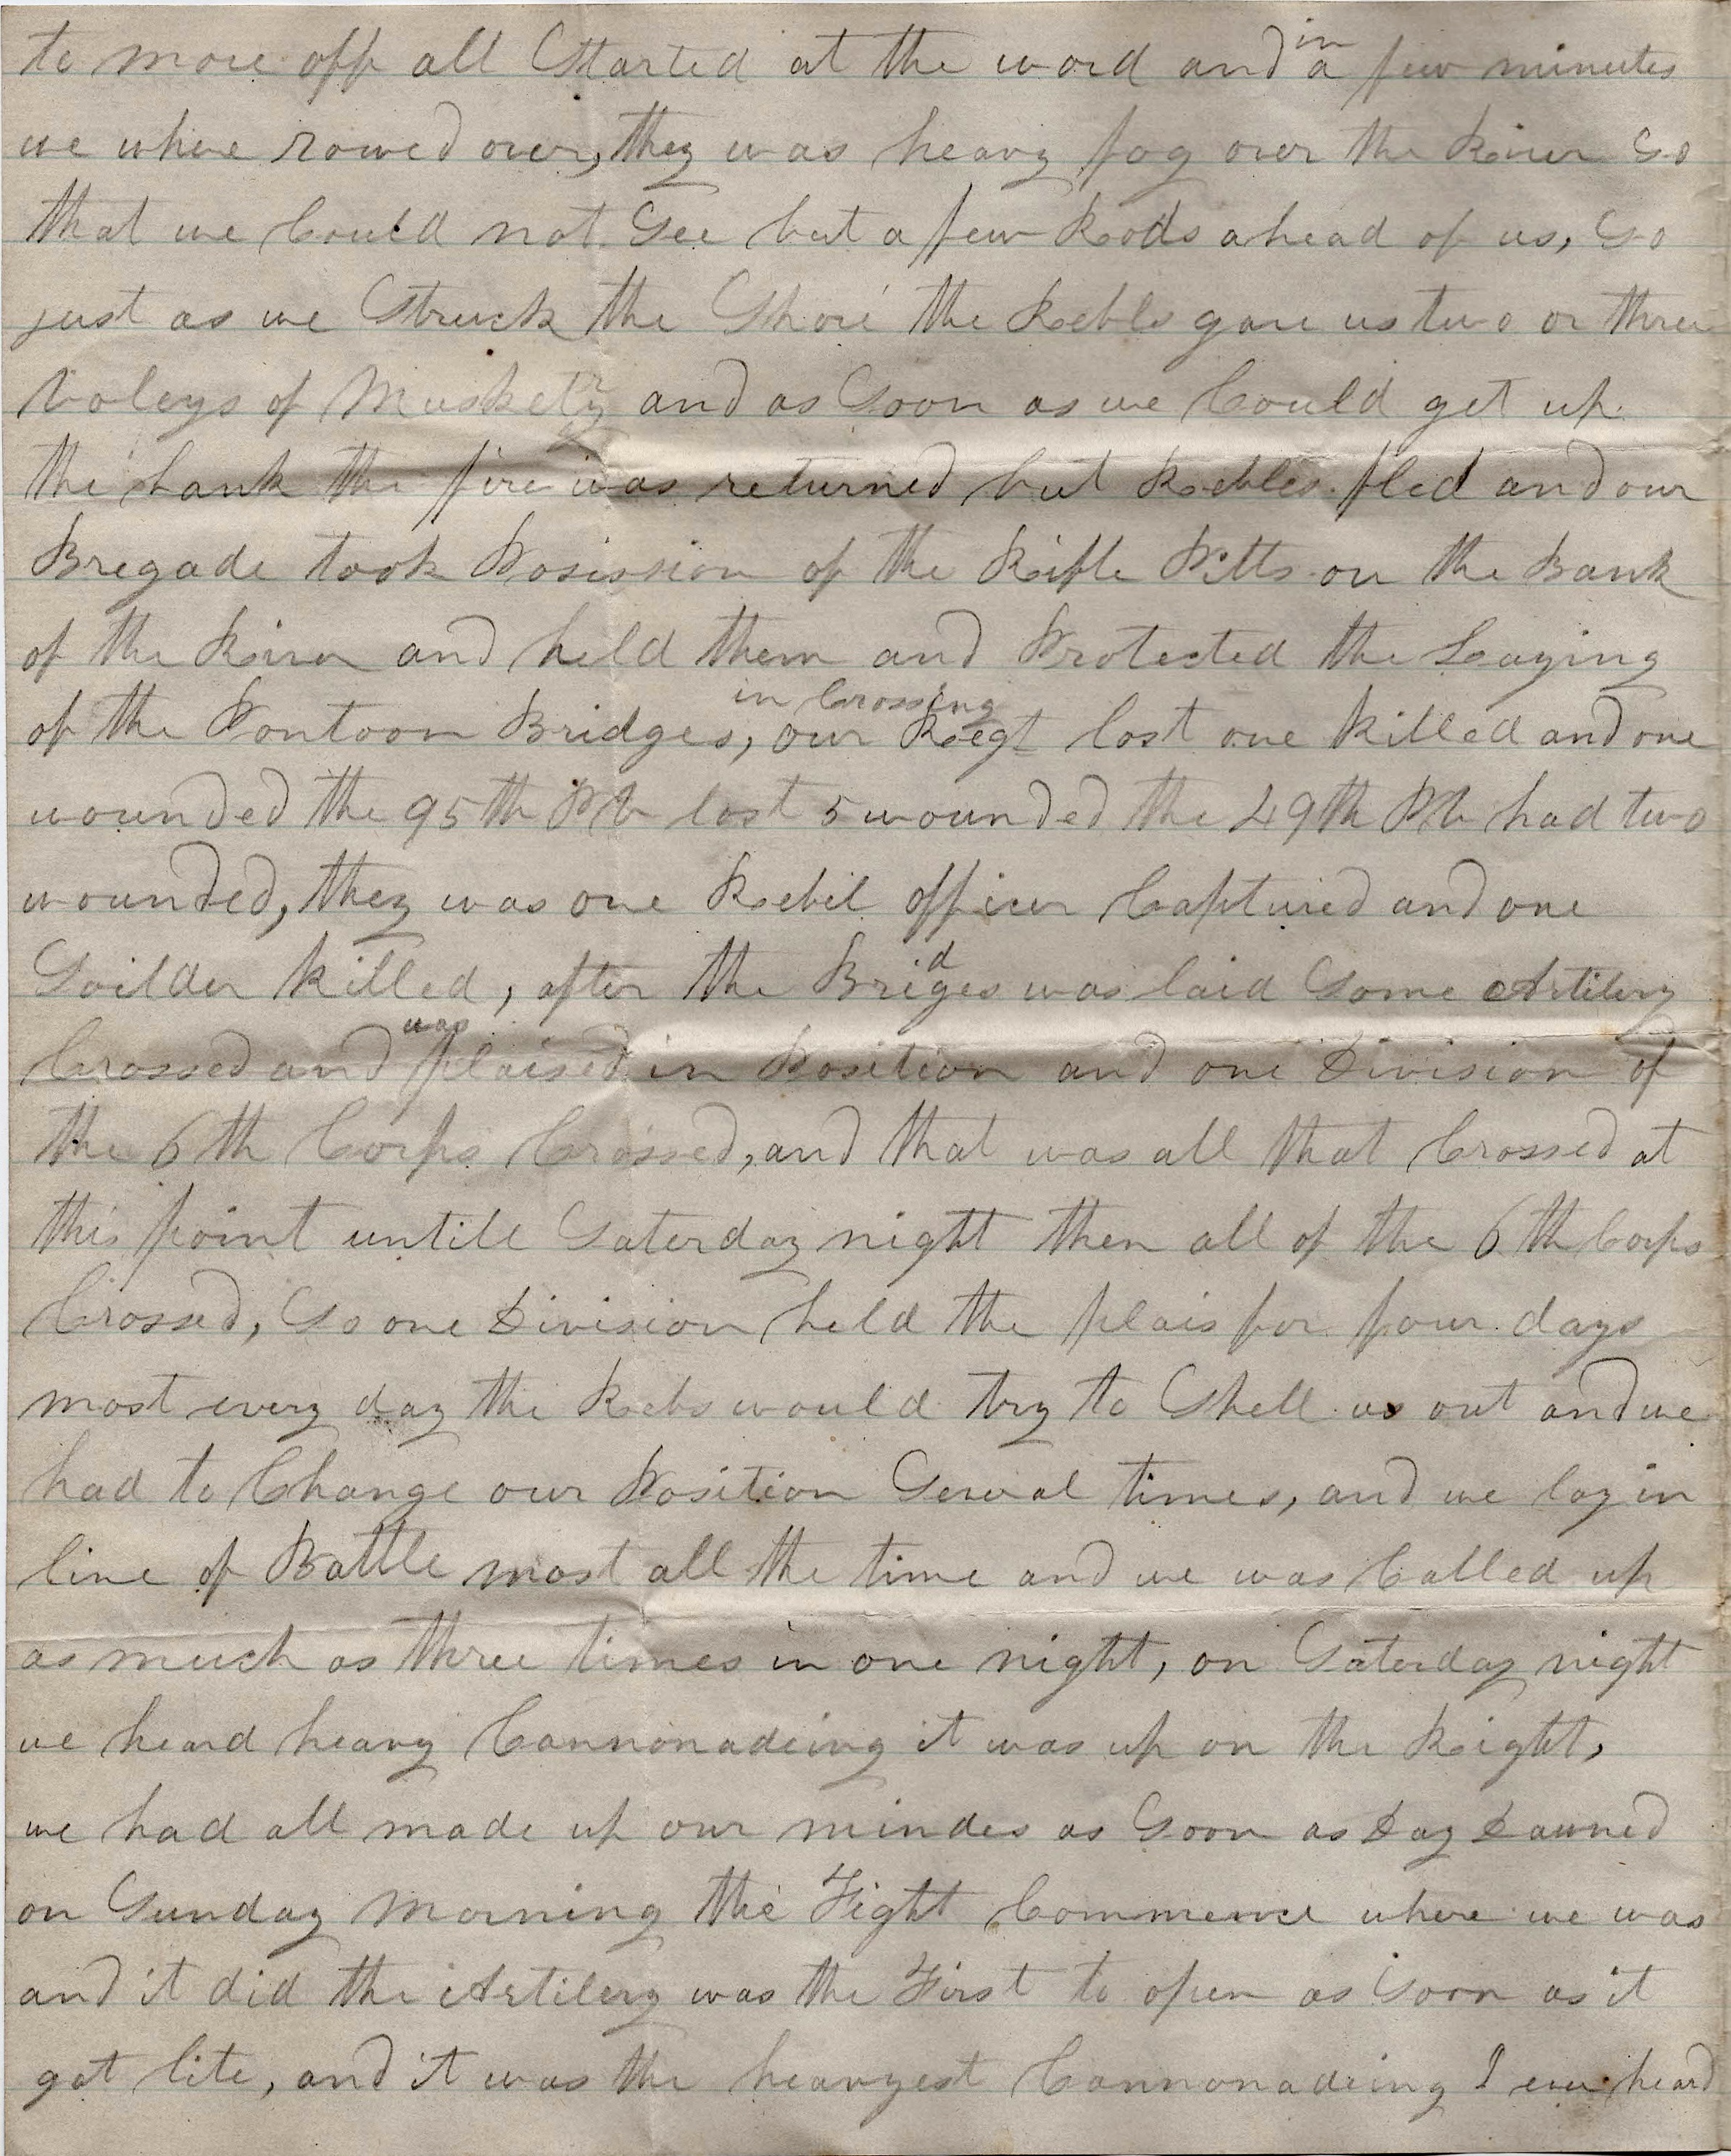 to move off all Started at the word and in a few minutes
we where rowed over, they was heavy fog over the River So
that we Could not See but a few Rods ahead of us, So
just as we Struck the Shore the Rebbls gave us two or three
Voleys of Musketry and as Soon as we Could get up
the bank the fire was returned but Rebbles fled and our
Bregade took Posission of the Rifle Pitts on the Bank
of the River and held them and Protected the Laying
of the Pontoon Bridges, in Crossing our Regt lost one killed and one
wounded the 95th PV lost 5 wounded the 49th PV had two
wounded, they was one Rebil officer Captured and one
Soilder killed, after the Bridges was laid Some Artilery
Crossed and was plaised in Position and one Division of
the 6th Corps Crossed, and that was all that Crossed at
this point untill Saterday night then all of the 6th Corps
Crossed, So one Division held the plais for four days
most every day the Rebs would try to Shell us out and we
had to Change our Position Serval times, and we lay in
line of Battle most all the time and we was Called up
as much as three times in one night, on Saterday night
we heard heavy Cannonadeing it was up on the Right,
we had all made up our mindes as Soon as Day Dawned
on Sunday Morning the Fight Commence where we was
and it did the Artilery was the First to open as Soon as it
got lite, and it was the heavyest Cannonadeing I ever heard